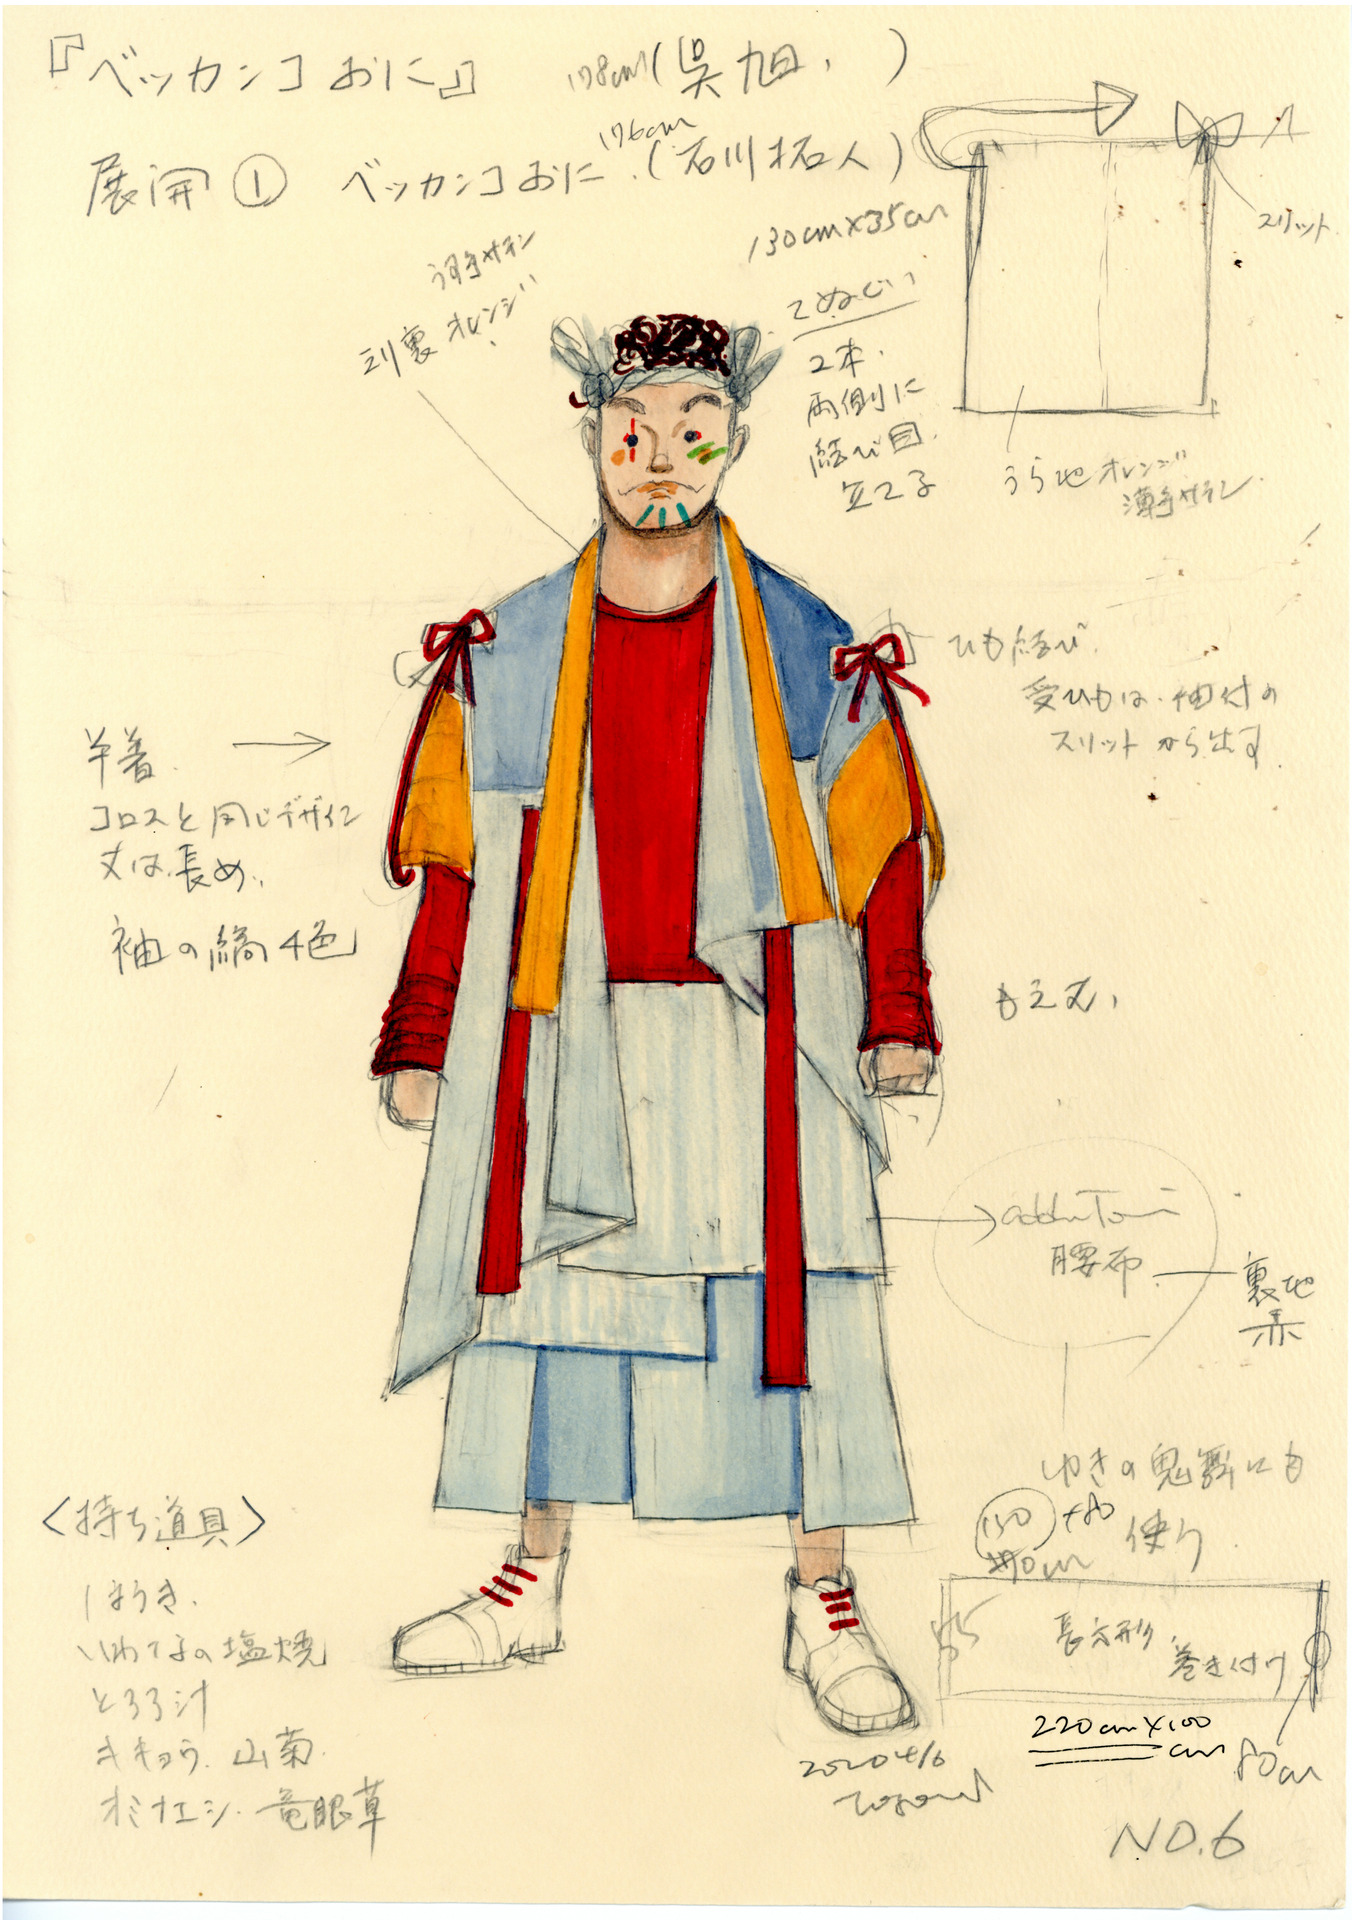 『ベッカンコおに』 178cm (呉旭、 )
展開① ベッカンコおに 176cm (石川拓人)
130cm×35cm
スリット
薄手サテン
裏 オレンジ
てぬぐい
2本.
両側に
結び目
立てる
うら地 オレンジ
薄手サテン
ひも結び.
受ひもは、袖付の
スリットから出す
半着
コロスと同じデザイン
丈は、長め、
袖の縞4色
もえむ、
腰布
裏地
赤
ゆきの鬼舞にも
150 +80 使う
170cm
長方形
巻き付け
220cm×100
cm
80cm
〈持ち道具〉
ほうき.
いわなの塩焼
とろろ汁
キキョウ. 山菊.
オミナエシ. 竜眼草
2020 4/6
NO.6